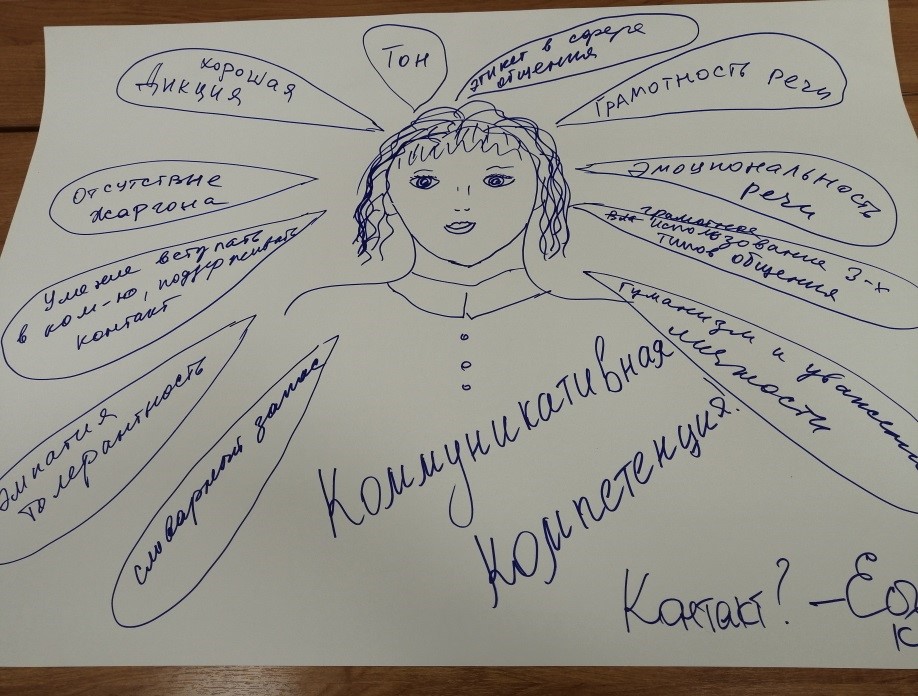 Тон
хорошая
Дикция
этикет в сфере
общения
Грамотность речи
Отсутствие
жаргона
Эмоциональность
речи
Умение вступать
в ком-ю, поддерживать
контакт
грамотное
использование 3-х
типов общения
Эмпатия
толерантность
словарный запас
гуманизм и уважение
личности
Коммуникативная
Компетенция.
Контакт? –